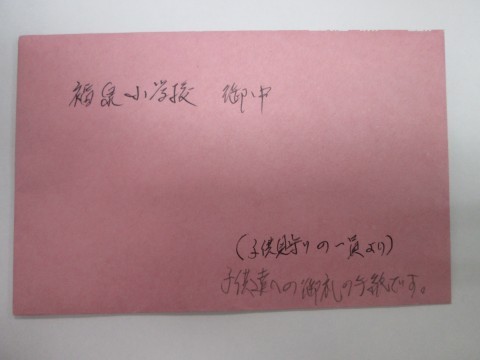 福泉小学校 御中
(子供見守りの一員より)
子供達への御礼の手紙です。